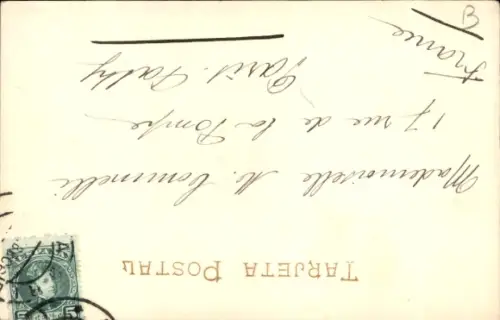 TARJETA POSTAL
Mademoiselle M.
17 rue de la Pompe
Paris. Passy
France
B